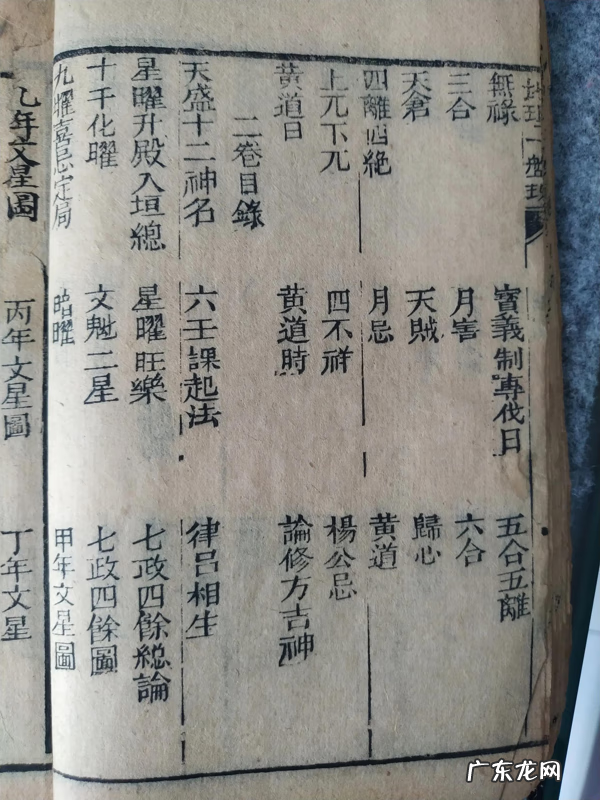 地理一盤珠
無祿 寶義制專伐日 五合五離
三合 月害 六合
天倉 天賊 歸心
四離四絕 月忌 黃道
上兀下兀 四不祥 楊公忌
黃道日 黃道時 論修方吉神
二卷目錄
天盛十二神名 六壬課起法 律呂相生
星曜升殿入垣總 星曜旺樂 七政四餘總論
十干化曜 文魁二星 七政四餘圖
九曜嘉忌定局 暗曜 甲年文星圖
乙年文星圖 丙年文星圖 丁年文星
广东龙网